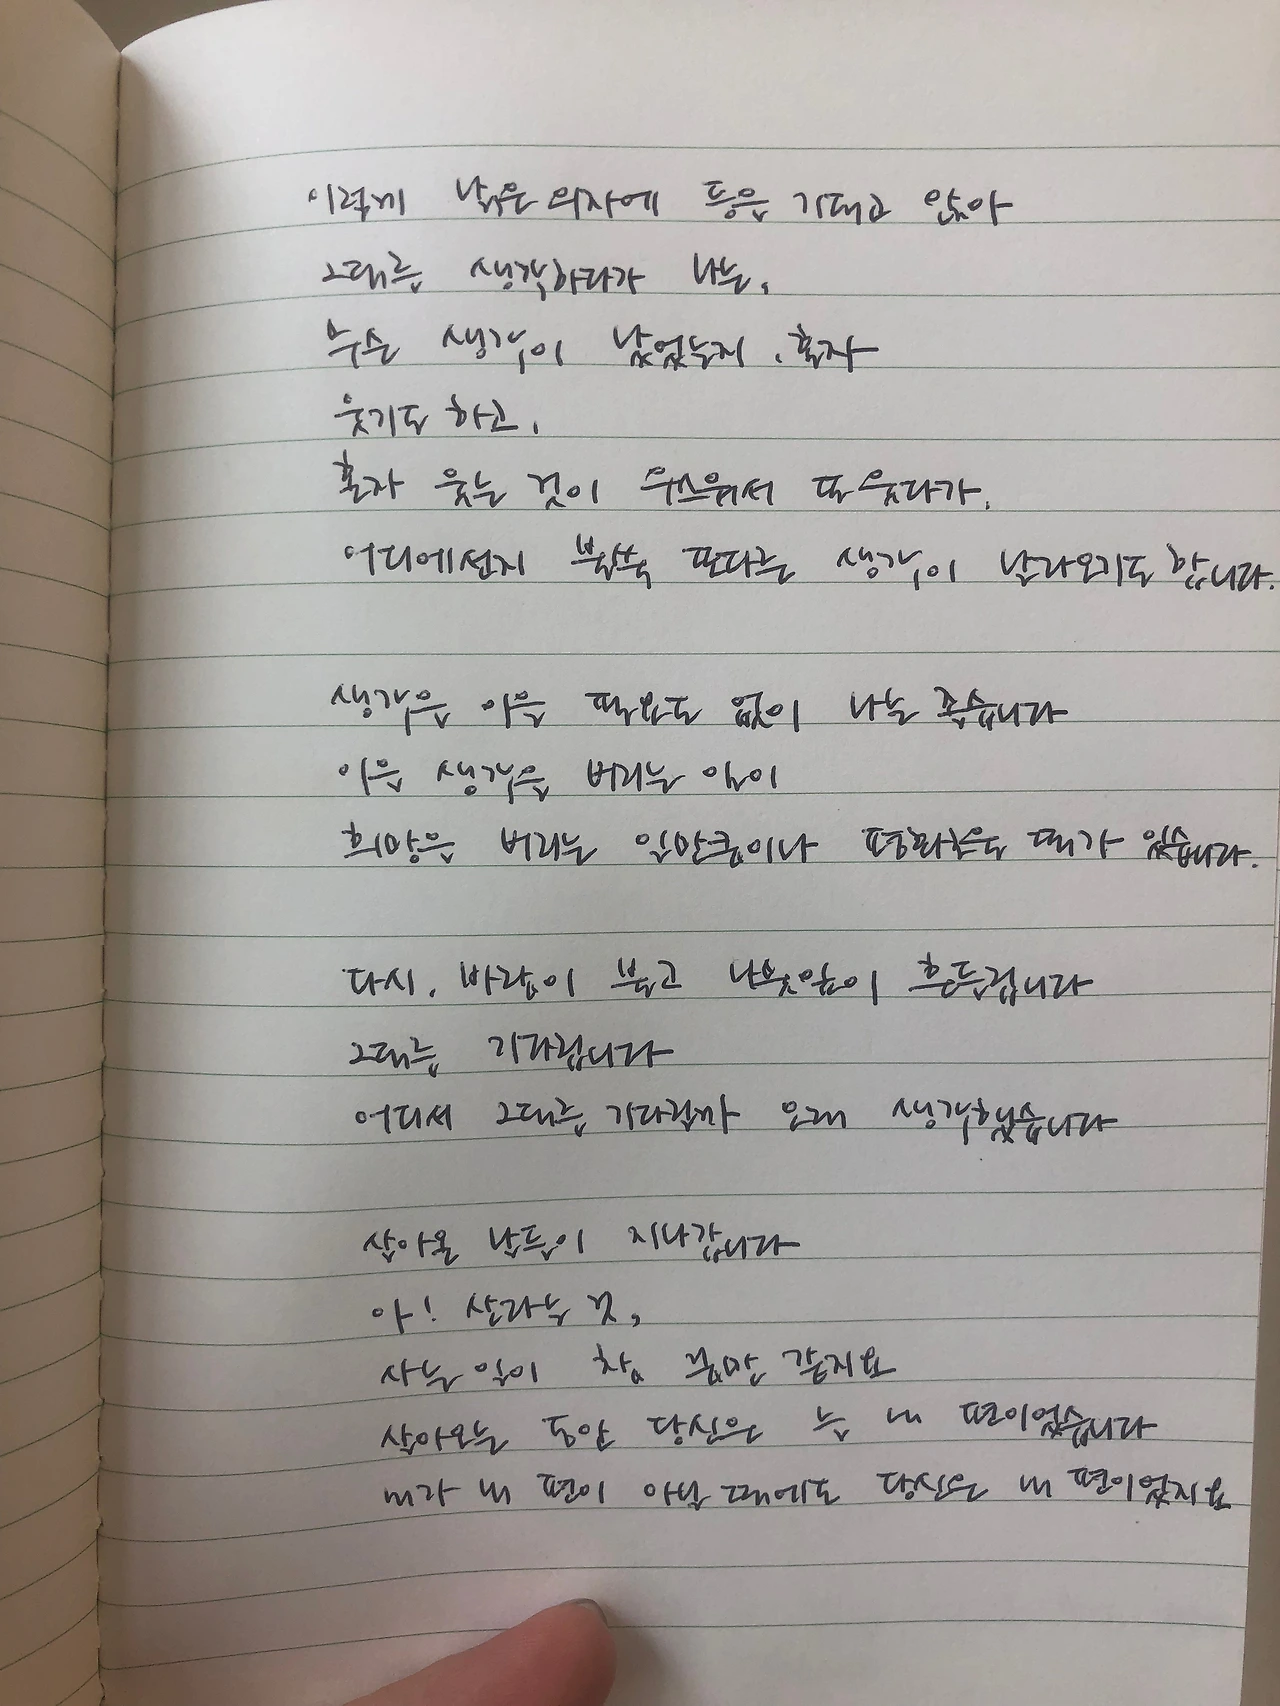 이렇게 낡은 의자에 등을 기대고 앉아
그대를 생각하다가 나는,
무슨 생각이 났었는지, 혼자
웃기도 하고,
혼자 웃는 것이 우스워서 또 웃다가,
어디에선지 불쑥 또다른 생각이 날라오기도 합니다.
생각을 이을 필요도 없이 나는 좋습니다
이은 생각을 버리는 일이
희망을 버리는 일만큼이나 평화로울 때가 있습니다.
다시, 바람이 불고 나뭇잎이 흔들립니다
그대를 기다립니다
어디서 그대를 기다릴까 오래 생각했습니다
살아온 날들이 지나갑니다
아! 산다는 것,
사는 일이 참 꿈만 같지요
살아오는 동안 당신은 늘 내 편이었습니다
내가 내 편이 아닐 때에도 당신은 내 편이었지요